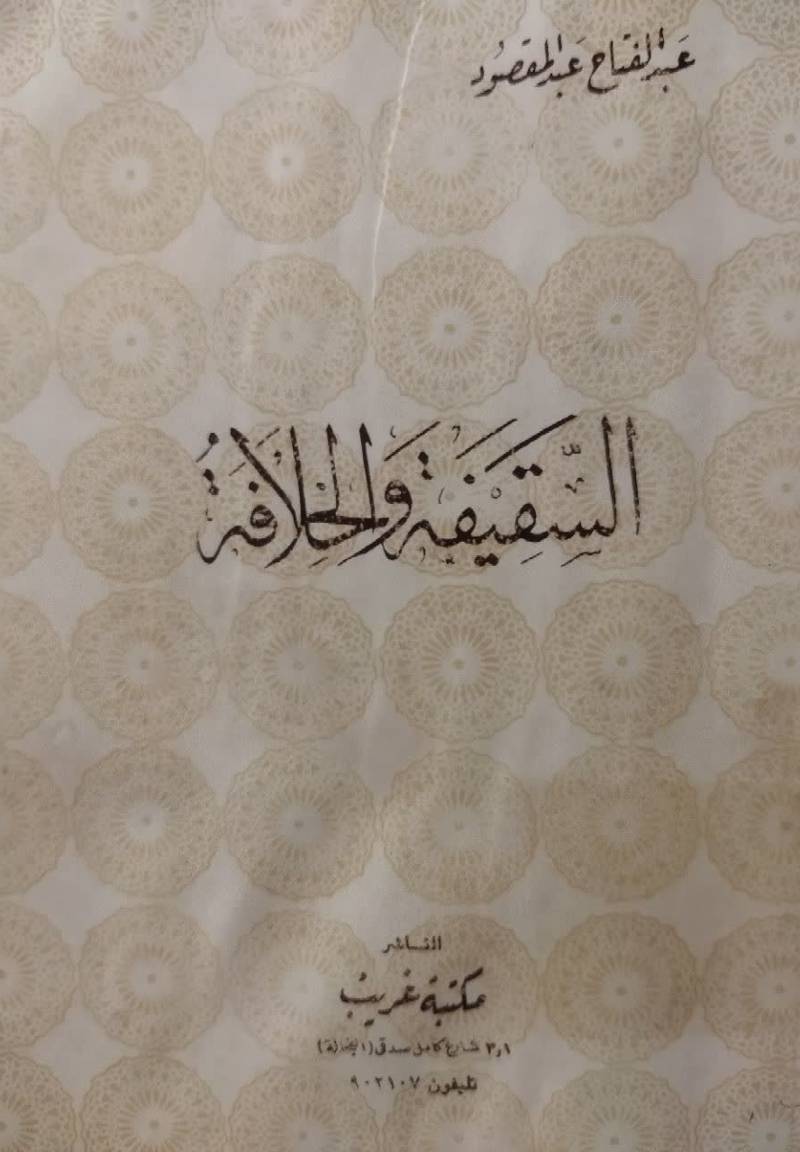 عَبدالفتاح عَبدالمقصُود
السَّقِيفَة وَالخِلَافَةُ
الناشر
مكتبة غريب
٣٫١ شارع كامل صدقى (الفجالة)
تليفون ٩٠٢١٠٧